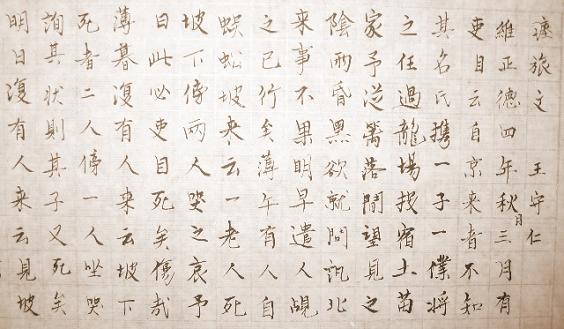 瘞旅文 王守仁
維正德四年秋日三月有
吏目云自京来者不知
其名氏携一子一僕將
之任過龍場投宿土苗
家予從籬落間望見之
陰雨昏黑欲就問訊北
来事不果明早遣人覘
之已行至薄午有人自
蜈蚣坡来云一老人死
坡下傍兩人哭之哀予
曰此必吏目死矣傷哉
薄暮復有人来云坡下
死者二人傍一人坐哭
詢其状則其子又死矣
明日復有人来云見坡